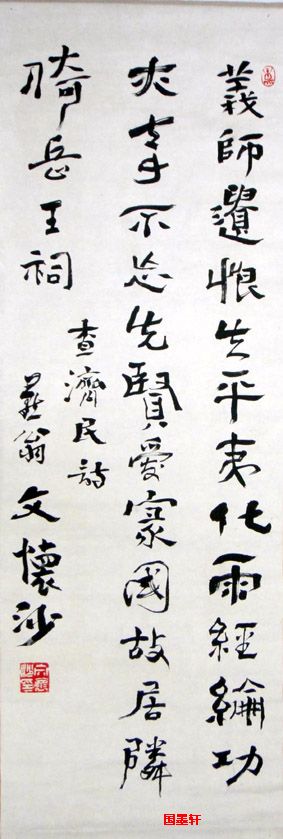 義師遺恨失平夷化雨經綸功
亦不忘先賢愛家國故居隣
岳王祠
查濟民詩
燕翁文懷沙
国墨轩